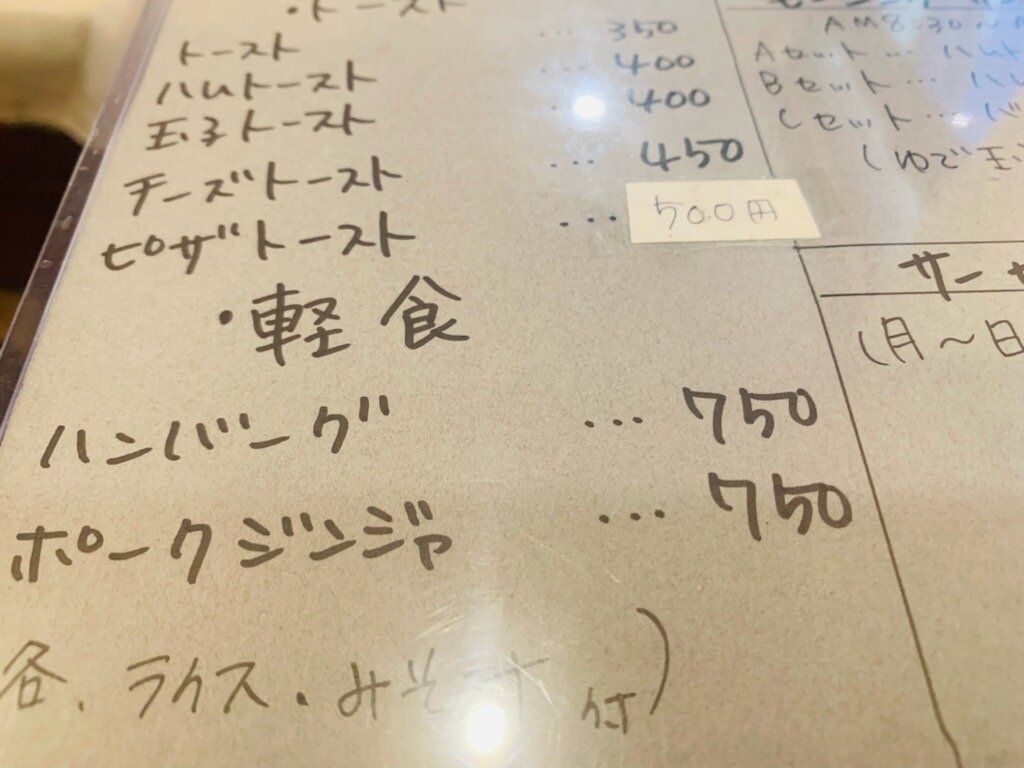 ・トースト
トースト … 350
ハムトースト … 400
玉子トースト … 400
チーズトースト … 450
ピザトースト … 500円
・軽食
ハンバーグ … 750
ポークジンジャ … 750
各、ライス・みそ汁付)
AM8:30
Aセット … ハムト
Bセット … ハム
Cセット … バ
(ゆで玉子
サー
(月〜日